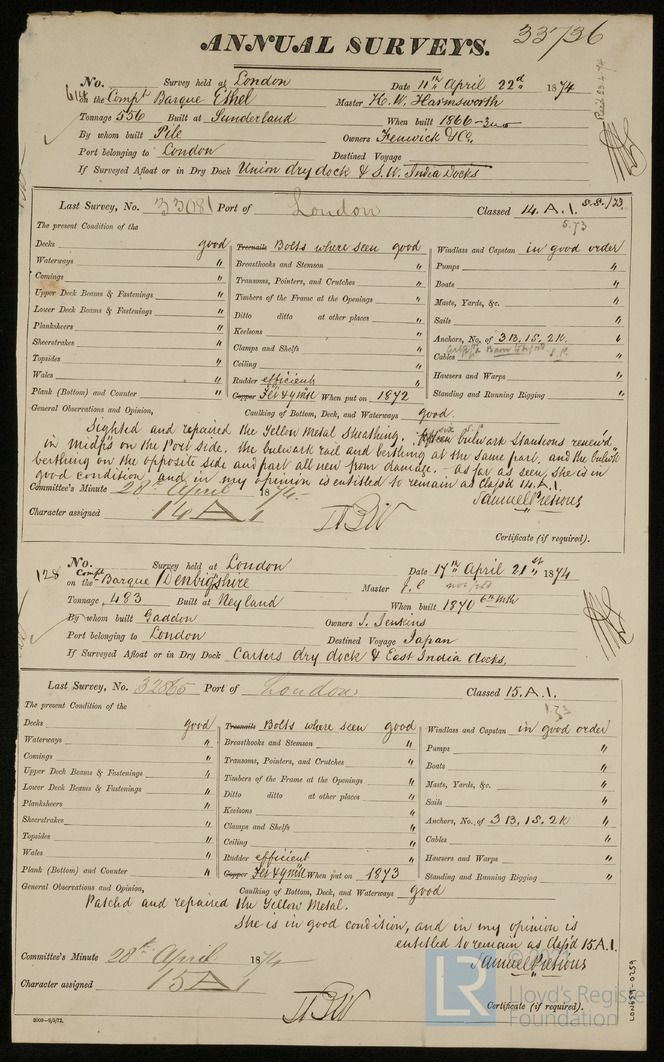 33736
ANNUAL SURVEYS.
No. Survey held at London Date 11th April 22d 1874
614 on the Compt Barque Ethel Master H. W. Harmsworth
Tonnage 556 Built at Sunderland When built 1866 - 3mo
By whom built Pile Owners Fenwick & Co,
Port belonging to London Destined Voyage
If Surveyed Afloat or in Dry Dock Union dry dock & S.W. India Docks
Last Survey, No. 33081 Port of London Classed 14. A. 1. S.S. 1/73.
5.73
The present Condition of the
Decks good
Waterways "
Comings "
Upper Deck Beams & Fastenings "
Lower Deck Beams & Fastenings "
Planksheers "
Sheerstrakes "
Topsides "
Wales "
Plank (Bottom) and Counter "
Treenails Bolts where seen good
Breasthooks and Stemson "
Transoms, Pointers, and Crutches "
Timbers of the Frame at the Openings "
Ditto ditto at other places "
Keelsons "
Clamps and Shelfs "
Ceiling "
Rudder efficient
Copper Felt & ym When put on 1872
Windlass and Capstan in good order
Pumps "
Boats "
Masts, Yards, &c. "
Sails "
Anchors, No. of 3 B, 1 S. 2 K. "
Cables "
Hawsers and Warps "
Standing and Running Rigging "
General Observations and Opinion, Caulking of Bottom, Deck, and Waterways good.
Sighted and repaired the Yellow Metal Sheathing. bulwark stantions renew'd
in midps on the Port side, the bulwark rail and berthing at the same part, and the bulwk
berthing on the opposite side and part all new from damage. - as far as seen, she is in
good condition, and in my opinion is entitled to remain as class'd 14. A. 1.
Committee's Minute 28th April 1874 Samuel Pretious
Character assigned 14 A 1
Certificate (if required).
128 No. Survey held at London Date 17th April 21st 1874
on the Compt Barque Denbighshire Master J. C
Tonnage 483 Built at Neyland When built 1870 6th Mth
By whom built Gaddon Owners J. Jenkins
Port belonging to London Destined Voyage Japan
If Surveyed Afloat or in Dry Dock Carters dry dock & East India docks,
Last Survey, No. 32865 Port of London Classed 15. A. 1.
1.73
The present Condition of the
Decks good
Waterways "
Comings "
Upper Deck Beams & Fastenings "
Lower Deck Beams & Fastenings "
Planksheers "
Sheerstrakes "
Topsides "
Wales "
Plank (Bottom) and Counter "
Treenails Bolts where seen good
Breasthooks and Stemson "
Transoms, Pointers, and Crutches "
Timbers of the Frame at the Openings "
Ditto ditto at other places "
Keelsons "
Clamps and Shelfs "
Ceiling "
Rudder efficient
Copper Felt & ym When put on 1873
Windlass and Capstan in good order
Pumps "
Boats "
Masts, Yards, &c. "
Sails "
Anchors, No. of 3 B, 1 S. 2 K "
Cables "
Hawsers and Warps "
Standing and Running Rigging "
General Observations and Opinion, Caulking of Bottom, Deck, and Waterways good
Patch'd and repaired the Yellow Metal.
She is in good condition, and in my opinion is
entitled to remain as class'd 15. A. 1.
Committee's Minute 28th April 1874 Samuel Pretious
Character assigned 15 A 1
Certificate (if required).
2000-9/9/72.
LR
Lloyd's Register
Foundation
LON659-0259